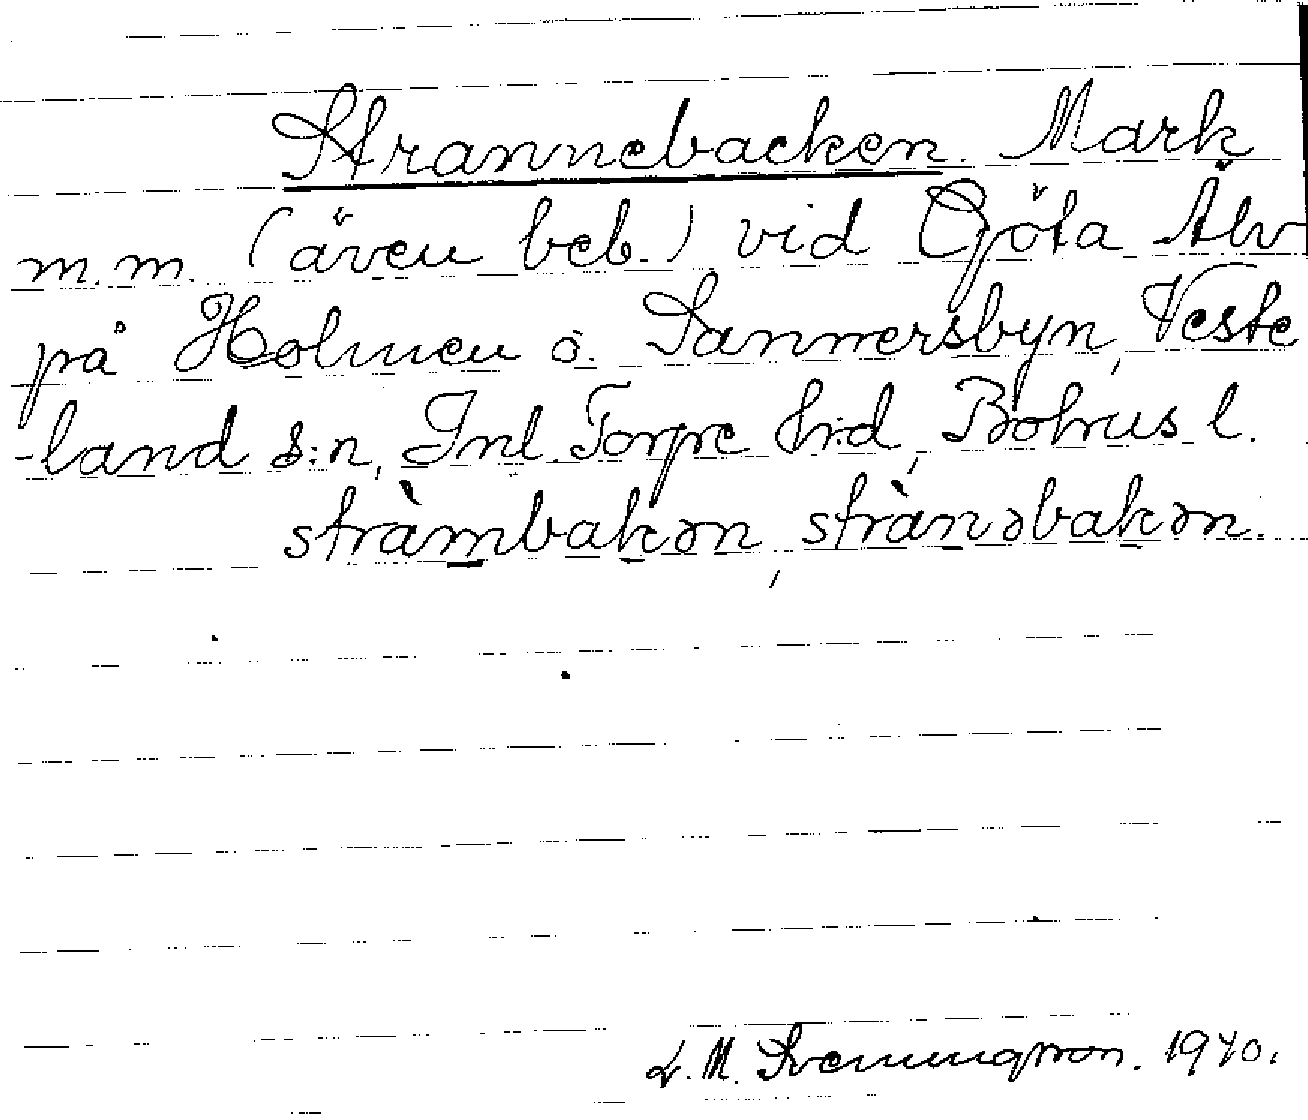 Strannebacken. Mark
m.m. (även beb.) vid Göta Älv
på Holmen å Sannersbyn, Veste
-land s:n, Inl. Torpe h:d, Bohus l.
stràmbakən, strànəbakən.
J. M. Svenungsson. 1940.